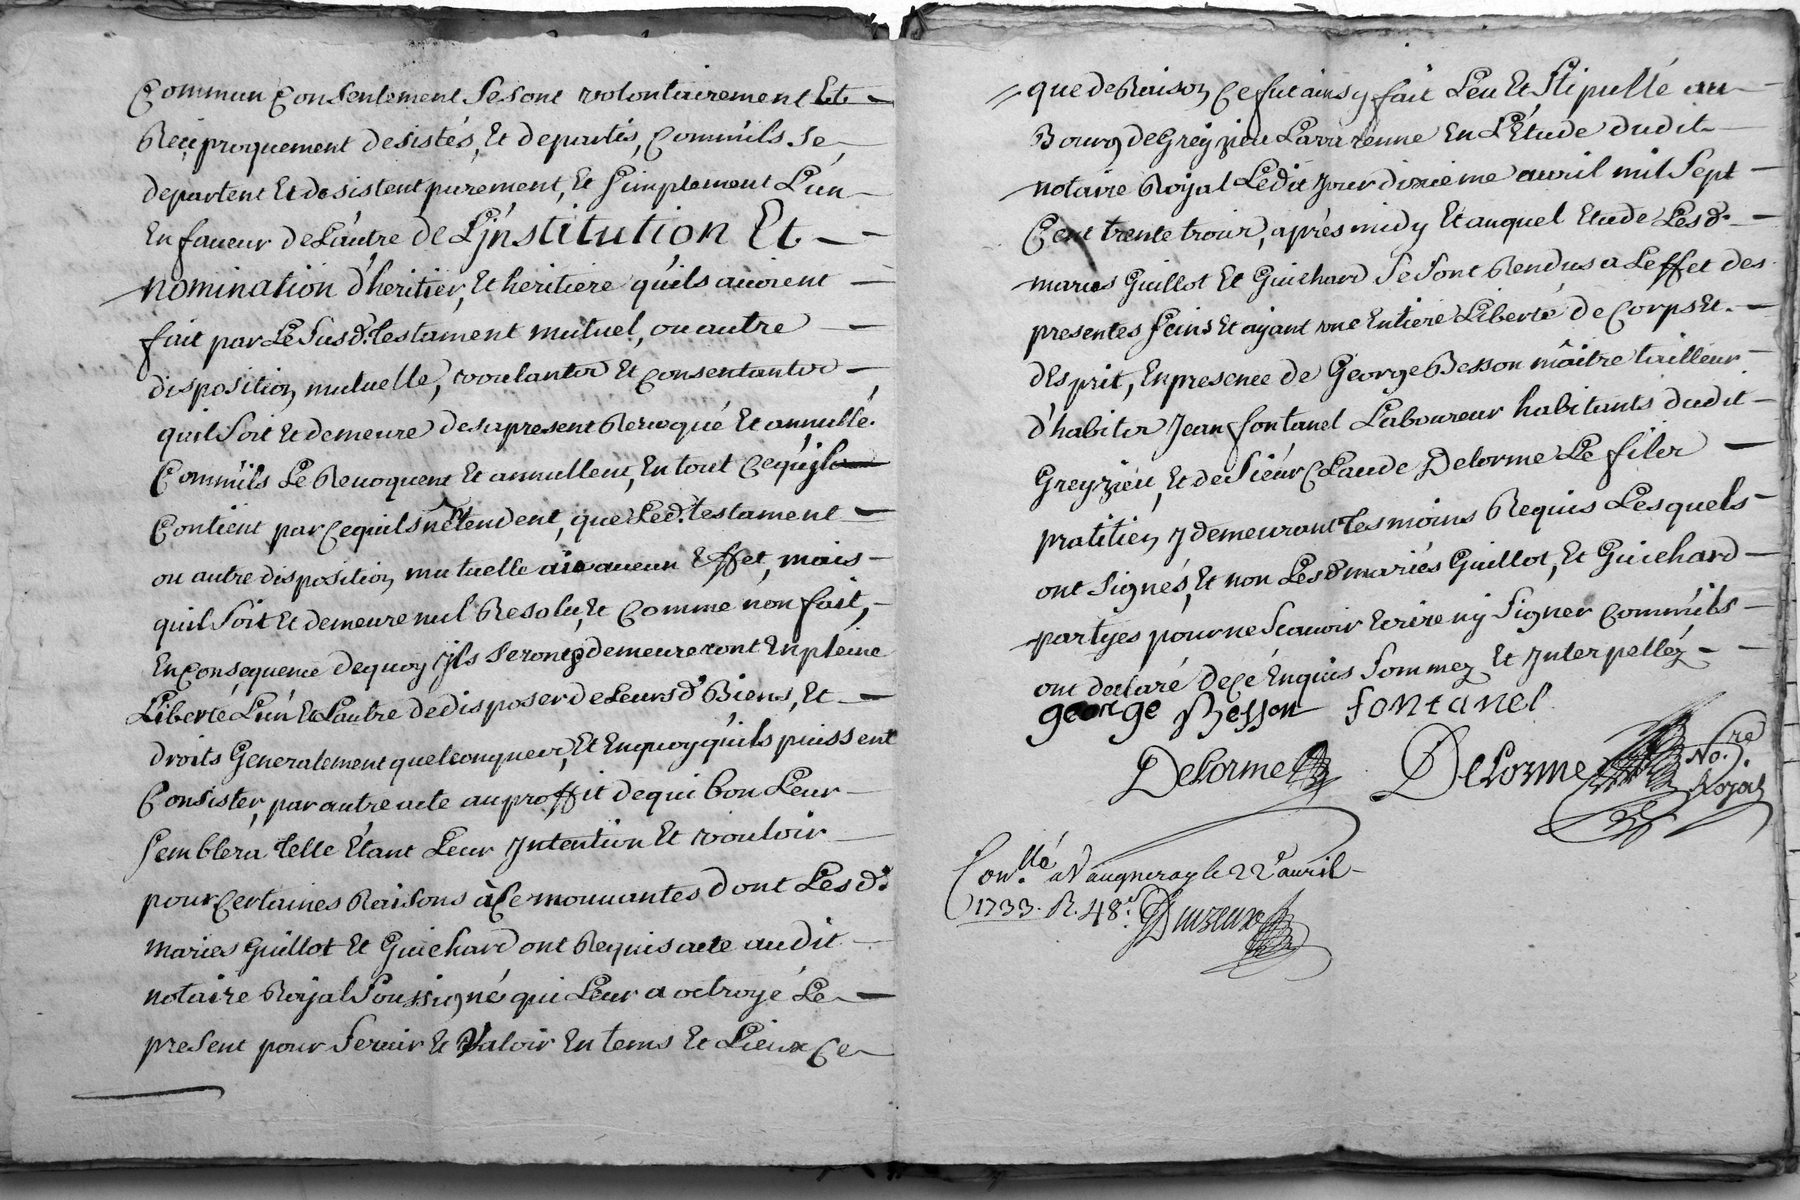 Commun Consentement se sont volontairement Et
Reciproquement desistés, Et departis, Comm'ils se
departent Et desistent purement, Et simplement L'un
En faveur de L'autre de L'jnstitution Et
nomination d'heritier, Et heritiere qu'ils avoient
fait par Le susd. testament mutuel, ou autre
disposition mutuelle, voulants Et Consentants
quil soit Et demeure des a present Revoqué Et annullé.
Comm'ils Le Revoquent Et annullent, En tout Ce qu'jl
Contient par Ce quils n'Entendent, que Led. testament
ou autre disposition mutuelle aie aucun Effet, mais
quil soit Et demeure nul Resolu, Et Comme non fait,
En Consequence de quoy jls seront demeureront En pleine
Liberté L'un Et L'autre de disposer de Leurs d. Biens, Et
droits Generalement quelconques, Et En quoy qu'ils puissent
Consister, par autre acte au proffit de qui bon Leur
semblera telle Etant Leur jntention Et vouloir
pour Certaines Raisons à Ce mouvantes dont Les d.
maries Guillot Et Guichard ont Requis acte audit
notaire Royal soussigné qui Leur a octroyé Le
present pour servir Et Valoir En tems Et Lieux Ce
que de Raison Ce fut ainsy fait Leu Et stipullé au
Bourg de Greyzieu Lavarenne En L'Etude dudit
notaire Royal Ledit jour dixieme avril mil sept
Cent trente trois, aprés midy Et auquel Etude Lesd.
maries Guillot Et Guichard se sont Rendus a L'effet des
presentes sains Et ayant une Entiere Liberté de Corps Et
d'Esprit, En presence de George Besson mâitre tailleur
d'habits Jean fontanel Laboureur habitants dudit
Greyzieu, Et de sieur Claude Delorme Le fils
pratitien y demeurant tesmoins Requis Lesquels
ont signés, Et non Lesd mariés Guillot, Et Guichard
partyes pour ne scavoir Ecrire ny signer Comm'ils
ont declaré de Cé Enquis sommez Et jnterpelléz
george Besson fontanel
Delorme Delorme No.re Royal
Con.llé a Vaugneray le 22e avril
1733. R. 48 s.